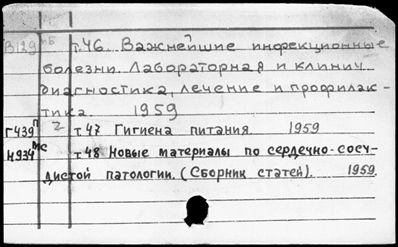 В129 пб т.46. Важнейшие инфекционные
болезни. Лабораторная и клинич.
диагностика, лечение и профилак-
тика. 1959
Г439 п 2 т.47 Гигиена питания 1959
Н934 мс т.48 Новые материалы по сердечно-сосу-
дистой патологии. (Сборник статей). 1959